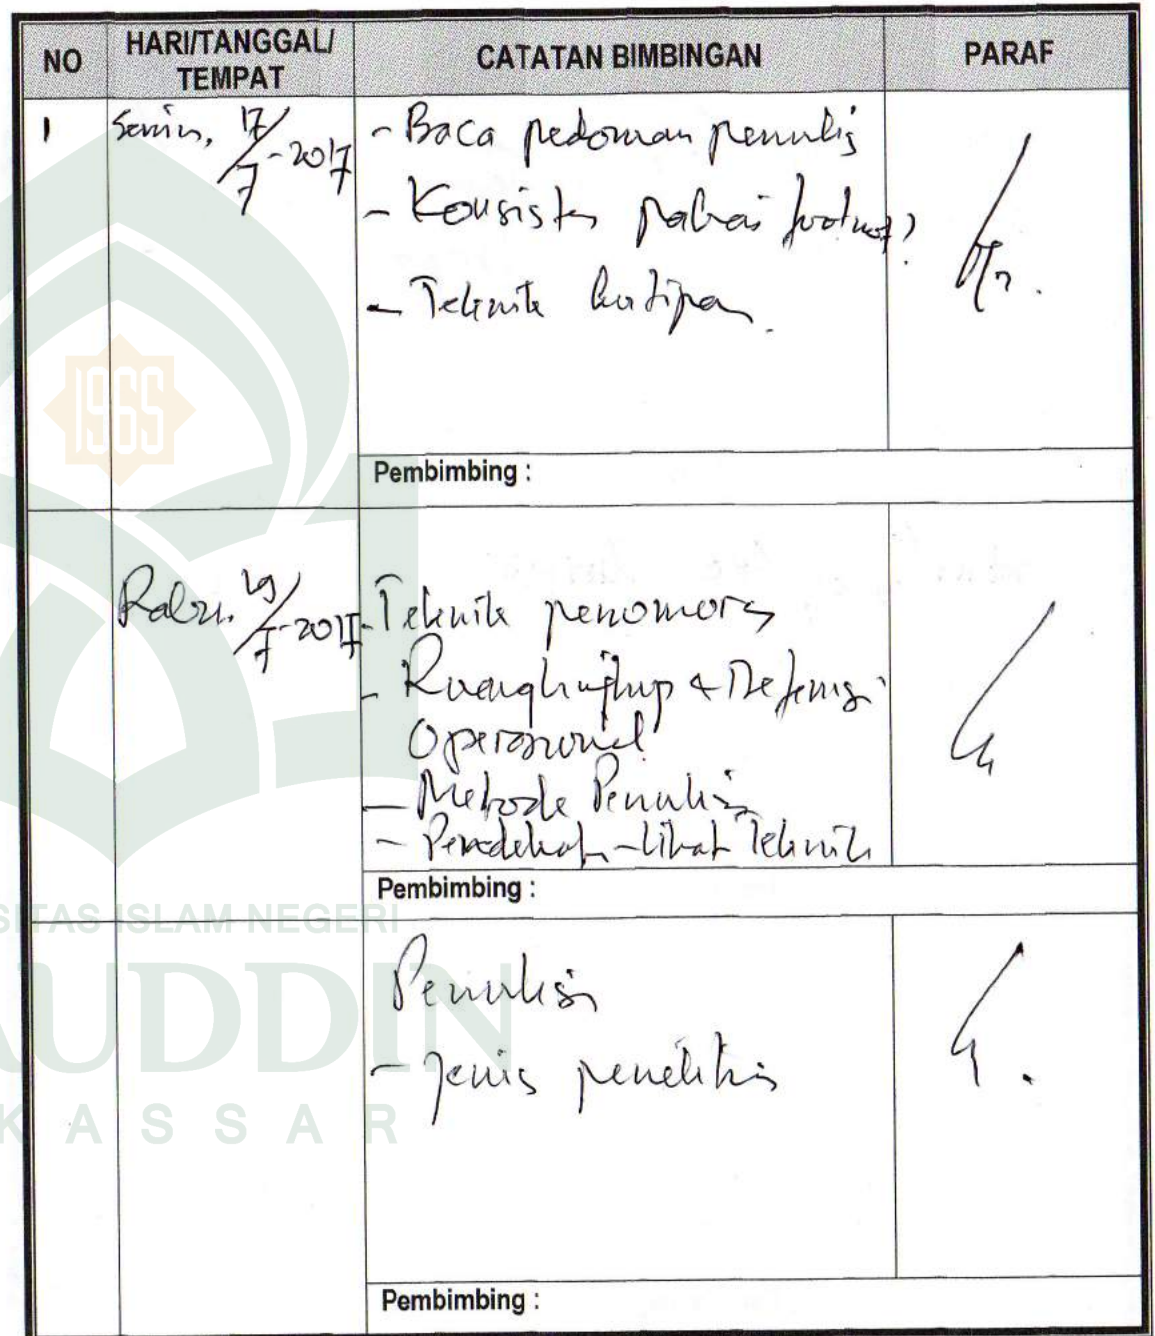 NO
HARI/TANGGAL/
TEMPAT
CATATAN BIMBINGAN
PARAF
1
Senin, 17/7-2017
- Baca pedoman penulis
- Konsisten pakai footnot?
- Teknik kutipan.
Pembimbing :
Rabu, 19/7-2017
- Teknik penomoran
- Ruang lingkup & Defenisi
Operasional
- Metode Penulisan
- Pendekatan - lihat Teknik
Pembimbing :
Penulisan
- Jenis penelitian
Pembimbing :
1965
SITAS ISLAM NEGERI
AUDDIN
KASSAR